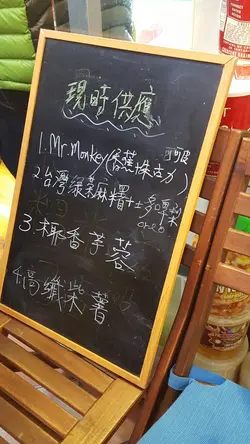 現時供應
1. Mr. Monkey (香蕉朱古力)
2 台灣綠茶麻糬十土多啤梨
oreo
3. 椰香芋蓉
4. 高纖紫薯